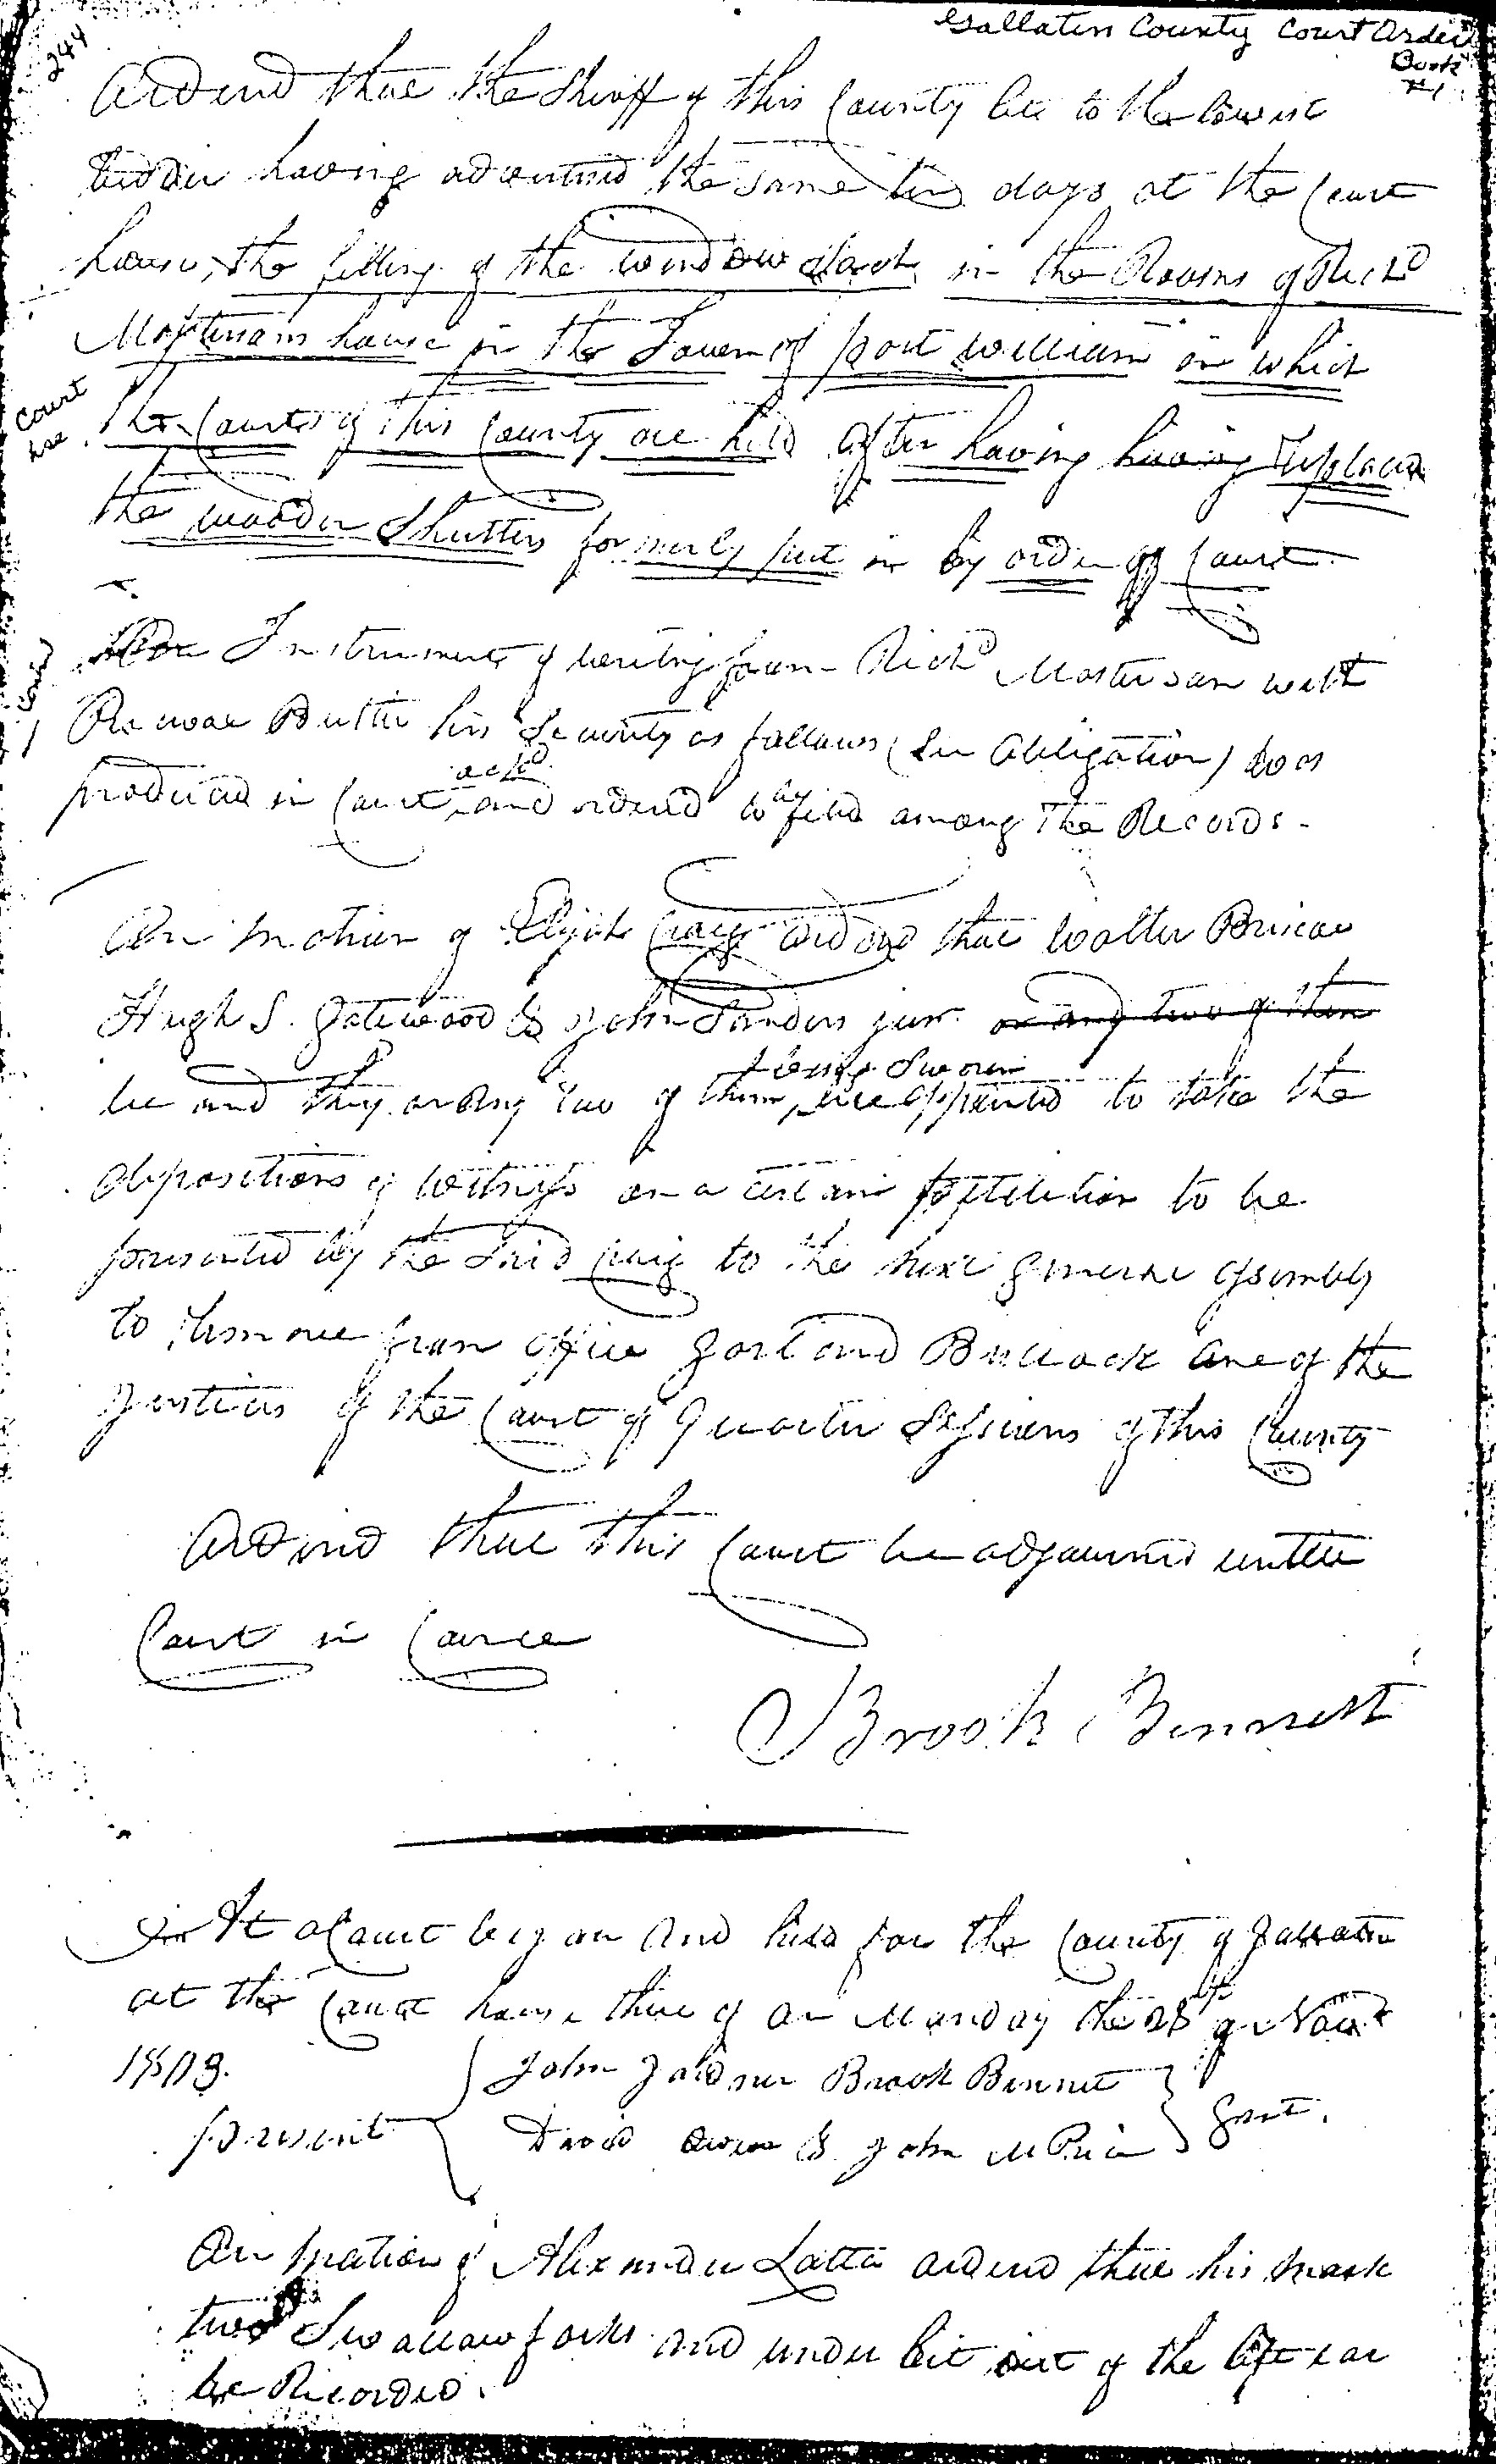 244
Gallatin County Court Order
Book
#1
Ordered that the Sheriff of this County let to the lowest
bidder having advertised the same ten days at the Court
house, the filling of the window sash in the Rooms of Richd
Mastersons house in the Town of port william in which
Court
hse
the Courts of this County are held after having having replaced
the wooden Shutters formerly put in by order of Court
Instrument of writing from Richd Masterson with
Butler his Security as follows (See Obligation) was
ackd
produced in Court and ordered to be filed among the Records.
On motion of Elijah Craig ordered that Walter Briscoe
Hugh S. Gatewood & John Sanders junr. or any two of them
being Sworn
be and they or any two of them, are appointed to take the
depositions of witness on a certain pettetition to be
presented by the said Craig to the next general assembly
to remove from office Garland Bullock one of the
Justices of the Court of Quarter Sessions of this County
Ordered that this Court be adjourned untill
Court in Course
Brook Bennett
At a Court began and held for the County of Gallatin
at the Court house thereof on Monday the 28th of Novr
1803.
present
John Gardner Brook Bennet
David Owen & John M Price
Gent.
On motion of Alexander Latta ordered that his mark
two Swallowforks and under bit out of the left ear
be Recorded.